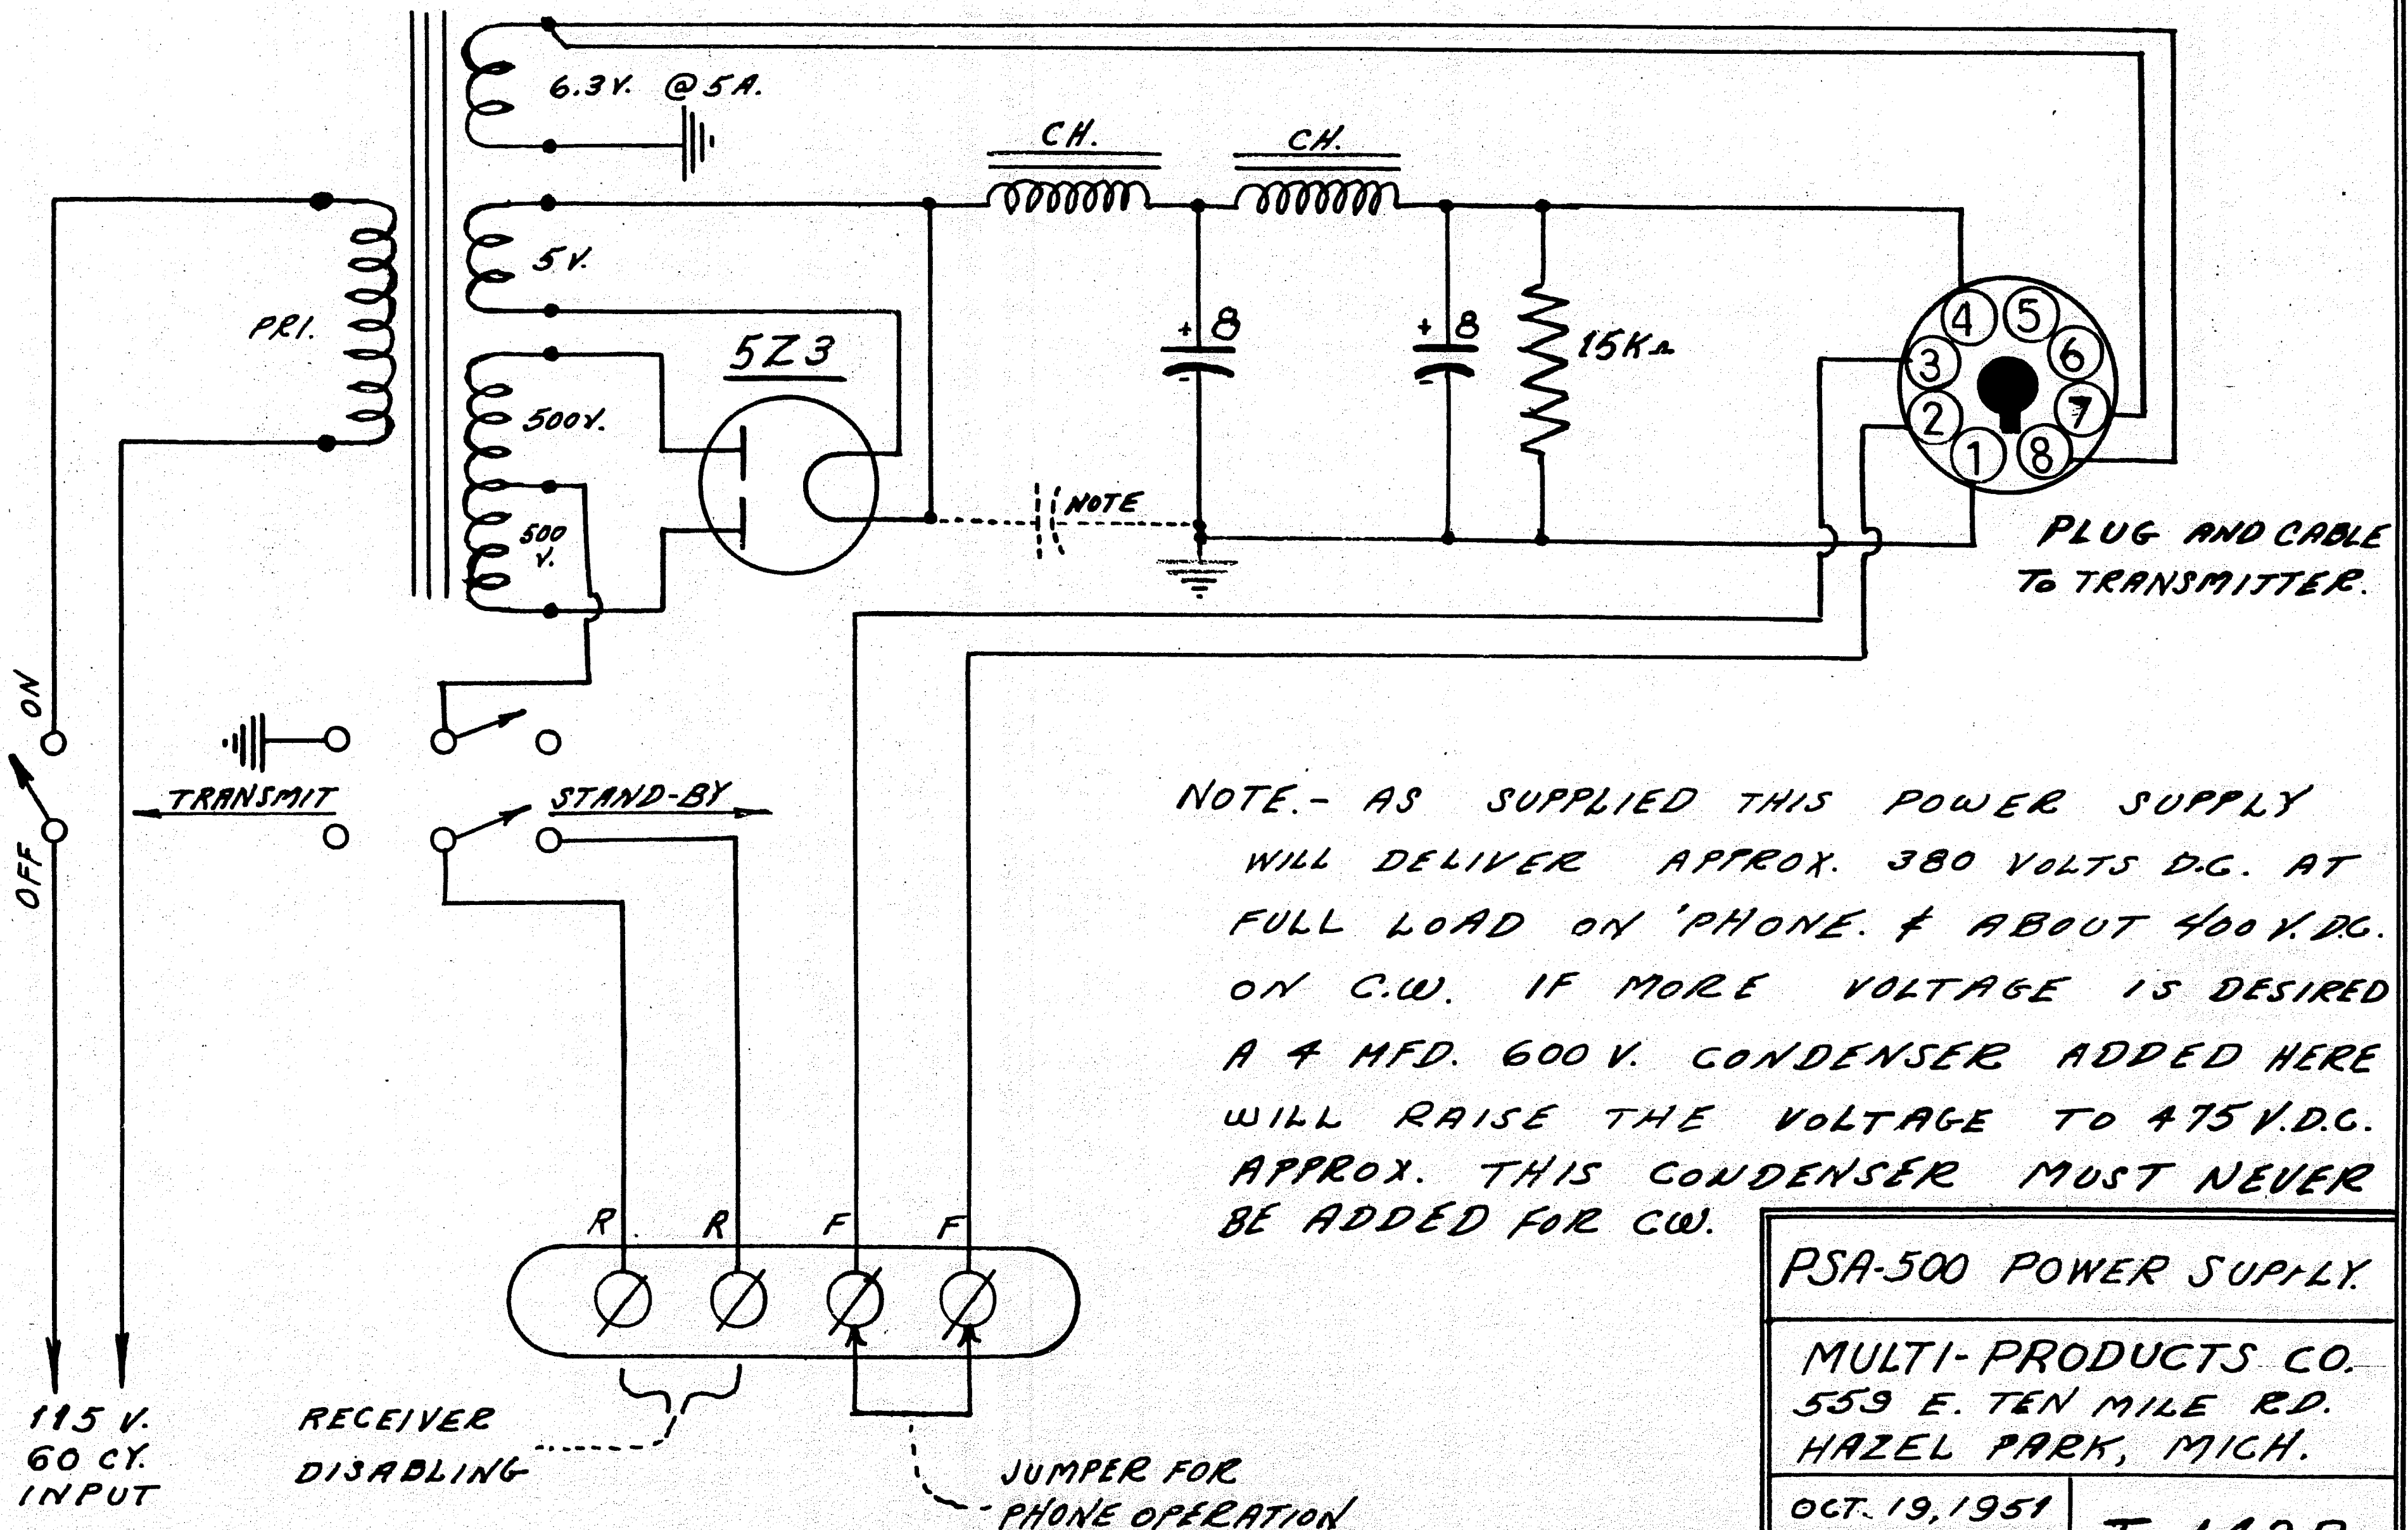 6.3V. @ 5A.
CH.
CH.
PRI.
5V.
5Z3
500V.
500
V.
+ 8
-
+ 8
-
15KΩ
NOTE
4
5
3
6
2
7
1
8
PLUG AND CABLE
TO TRANSMITTER.
ON
OFF
TRANSMIT
STAND-BY
NOTE.- AS SUPPLIED THIS POWER SUPPLY
WILL DELIVER APPROX. 380 VOLTS D.C. AT
FULL LOAD ON 'PHONE. & ABOUT 400 V. D.C.
ON C.W. IF MORE VOLTAGE IS DESIRED
A 4 MFD. 600 V. CONDENSER ADDED HERE
WILL RAISE THE VOLTAGE TO 475 V.D.C.
APPROX. THIS CONDENSER MUST NEVER
BE ADDED FOR CW.
R.
R
F
F
115 V.
60 CY.
INPUT
RECEIVER
DISABLING
JUMPER FOR
PHONE OPERATION
PSA-500 POWER SUPPLY.
MULTI-PRODUCTS CO.
559 E. TEN MILE RD.
HAZEL PARK, MICH.
OCT. 19, 1951